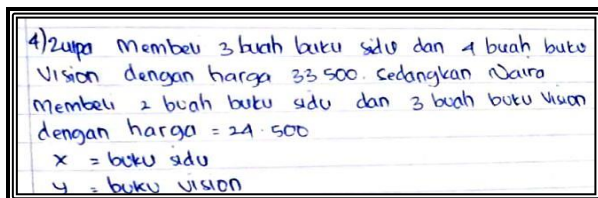 4) Zulpa membeli 3 buah buku sidu dan 4 buah buku
vision dengan harga 33 500. sedangkan Naira
membeli 2 buah buku sidu dan 3 buah buku vision
dengan harga = 24.500
x = buku sidu
y = buku vision